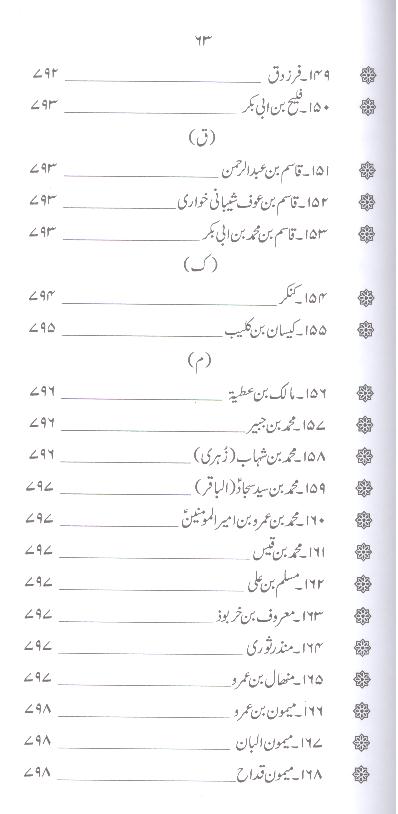 ۶۳
۱۴۹۔فرزدق ــــــــــ ۷۹۲
۱۵۰۔فلیح بن ابی بکر ــــــــــ ۷۹۳
(ق)
۱۵۱۔قاسم بن عبدالرحمن ــــــــــ ۷۹۳
۱۵۲۔قاسم بن عوف شیبانی خواری ــــــــــ ۷۹۳
۱۵۳۔قاسم بن محمد بن ابی بکر ــــــــــ ۷۹۳
(ک)
۱۵۴۔کنکر ــــــــــ ۷۹۴
۱۵۵۔کیسان بن کلیب ــــــــــ ۷۹۵
(م)
۱۵۶۔مالک بن عطیۃ ــــــــــ ۷۹۶
۱۵۷۔محمد بن جبیر ــــــــــ ۷۹۶
۱۵۸۔محمد بن شہاب (زُہری) ــــــــــ ۷۹۶
۱۵۹۔محمد بن سید سجادؑ (الباقرؑ) ــــــــــ ۷۹۷
۱۶۰۔محمد بن عمرو بن امیر المومنینؑ ــــــــــ ۷۹۷
۱۶۱۔محمد بن قیس ــــــــــ ۷۹۷
۱۶۲۔مسلم بن علی ــــــــــ ۷۹۷
۱۶۳۔معروف بن خربوذ ــــــــــ ۷۹۷
۱۶۴۔منذر ثوری ــــــــــ ۷۹۷
۱۶۵۔منھال بن عمرو ــــــــــ ۷۹۷
۱۶۶۔میمون بن عمرو ــــــــــ ۷۹۸
۱۶۷۔میمون البان ــــــــــ ۷۹۸
۱۶۸۔میمون قداح ــــــــــ ۷۹۸